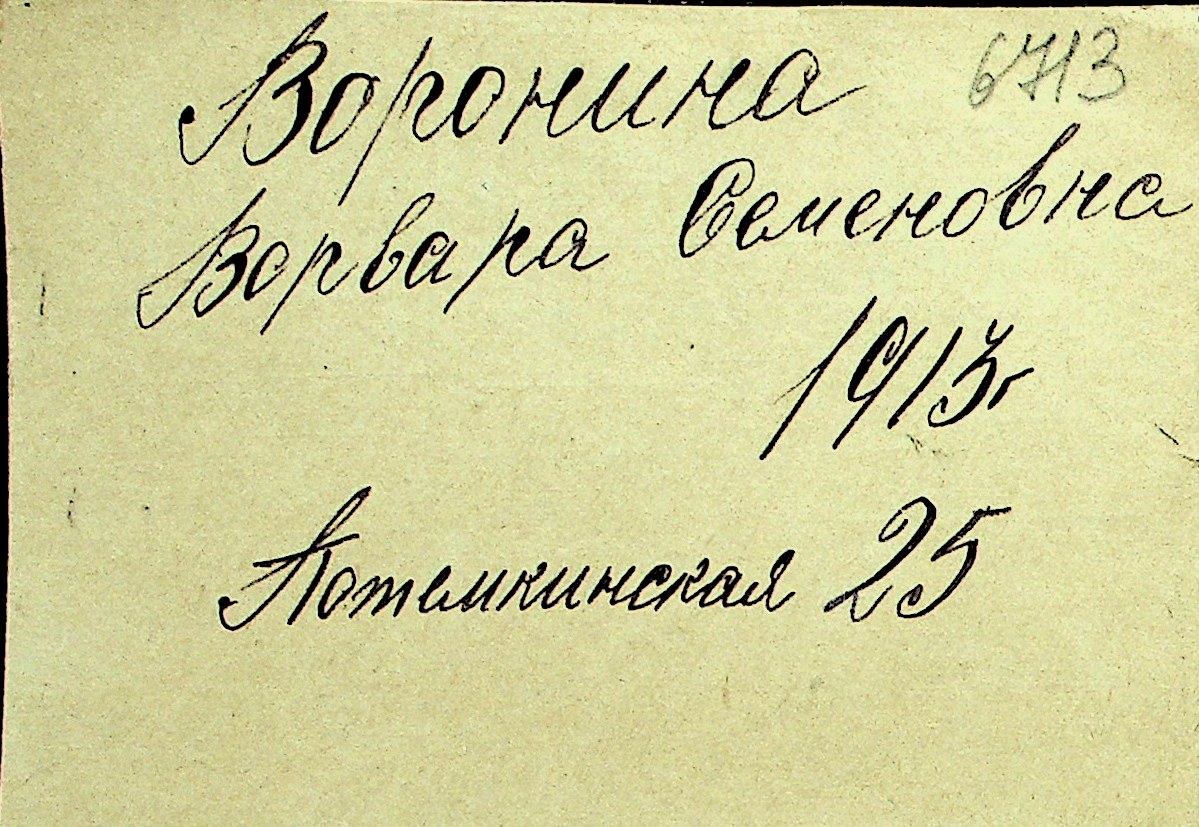 6713
Воронина
Ворвара Семеновна
1913г
Потемкинская 25